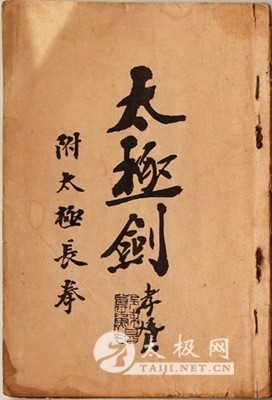 太極劍
孝胥
附太極長拳
太极网
TAIJI.NET.CN